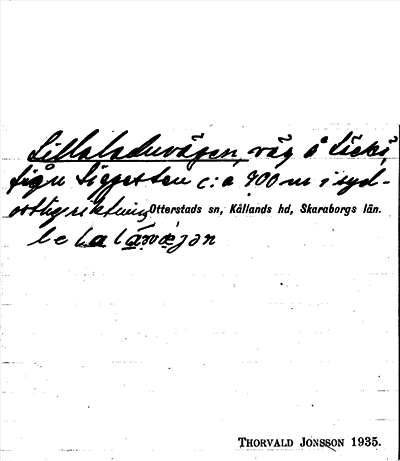 Lillaladuvägen, väg å Läckö,
från Siggesten c:a 900 m i syd-
ostlig riktning Otterstads sn, Kållands hd, Skaraborgs län.
THORVALD JONSSON 1935.